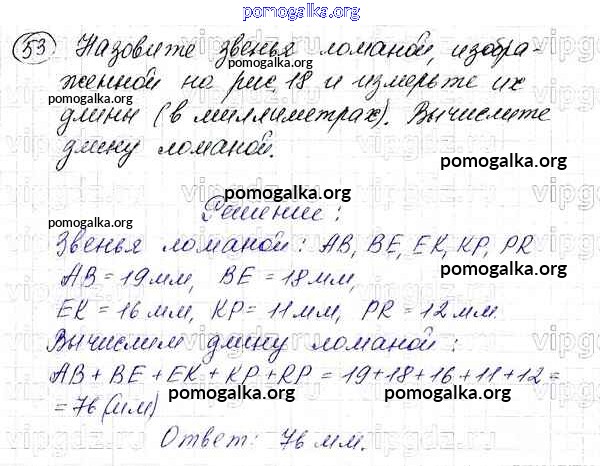 pomogalka.org
53 Назовите звенья ломаной, изобра-
женной на рис. 18 и измерьте их
pomogalka.org
длины (в миллиметрах). Вычислите
длину ломаной.
pomogalka.org
pomogalka.org
Решение:
pomogalka.org
Звенья ломаной: AB, BE, EK, KP, PR
AB = 19 мм, BE = 18 мм,
pomogalka.org
EK = 16 мм, KP = 11 мм, PR = 12 мм.
pomogalka.org
Вычислим длину ломаной:
AB + BE + EK + KP + RP = 19+18+16+11+12 =
= 76 (мм)
pomogalka.org
pomogalka.org
Ответ: 76 мм.